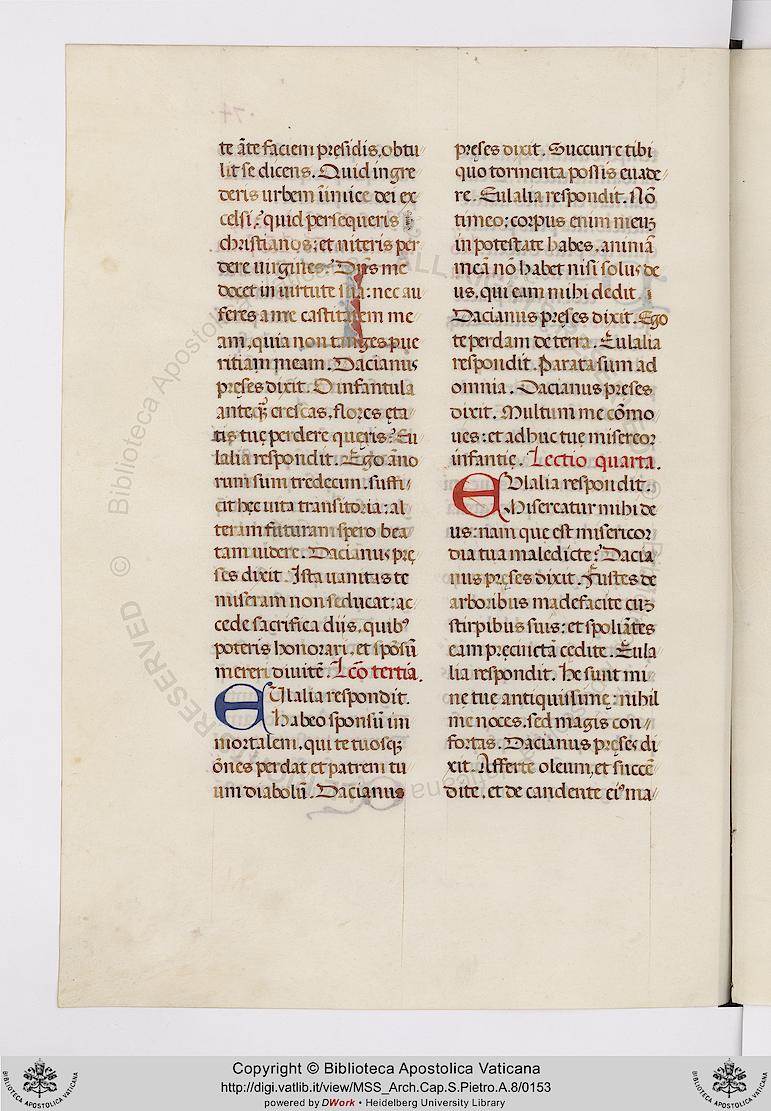 te ãte faciem presidis, obtu
lit se dicens. Quid ingre
deris urbem inimice dei ex
celsi; quid persequeris
christianos: et niteris per
dere uirgines? Dñs me
docet in uirtute sua: nec au
feres a me castitatem me
am, quia non tanges pue
ritiam meam. Dacianus
pręses dixit. O infantula
ante q̃ crescas, flores ęta
tis tuę perdere quęris? Eu
lalia respondit. Ego ãno
rum sum tredecim: suffi
cit hęc uita transitoria: al
teram futuram spero bea
tam uidere. Dacianus pre
ses dixit. Ista uanitas te
miseram non seducat: ac
cede sacrifica diis, quibꝰ
poteris honorari, et spõsũ
mereri diuitẽ. Lcõ tertia.
EVlalia respondit.
Habeo sponsũ im
mortalem, qui te tuosqȝ
õnes perdat, et patrem tu
um diabolũ. Dacianus
pręses dixit. Succurre tibi
quo tormenta possis euade
re. Eulalia respondit. Nõ
timeo: corpus enim meuȝ
in potestate habes, animã
meã nõ habet nisi solus de
us, qui eam mihi dedit.
Dacianus pręses dixit. Ego
te perdam de terra. Eulalia
respondit. Parata sum ad
omnia. Dacianus pręses
dixit. Multum me cõmo
ues: et adhuc tuę misereor
infantię. Lectio quarta.
EVlalia respondit.
Misereatur mihi de
us: nam que est misericor
dia tua maledicte? Dacia
nus pręses dixit. Fustes de
arboribus madefacite cuȝ
stirpibus suis: et spoliãtes
eam pręcinctã cedite. Eula
lia respondit. He sunt mi
nę tuę antiquissimę: nihil
me noces, sed magis con
fortas. Dacianus pręses di
xit. Afferte oleum, et succẽ
dite, et de candente eiꝰ ma
© Biblioteca Apostolica Vaticana
ALL RIGHTS RESERVED
Copyright © Biblioteca Apostolica Vaticana
http://digi.vatlib.it/view/MSS_Arch.Cap.S.Pietro.A.8/0153
powered by DWork • Heidelberg University Library
BIBLIOTECA APOSTOLICA VATICANA
BIBLIOTECA APOSTOLICA VATICANA